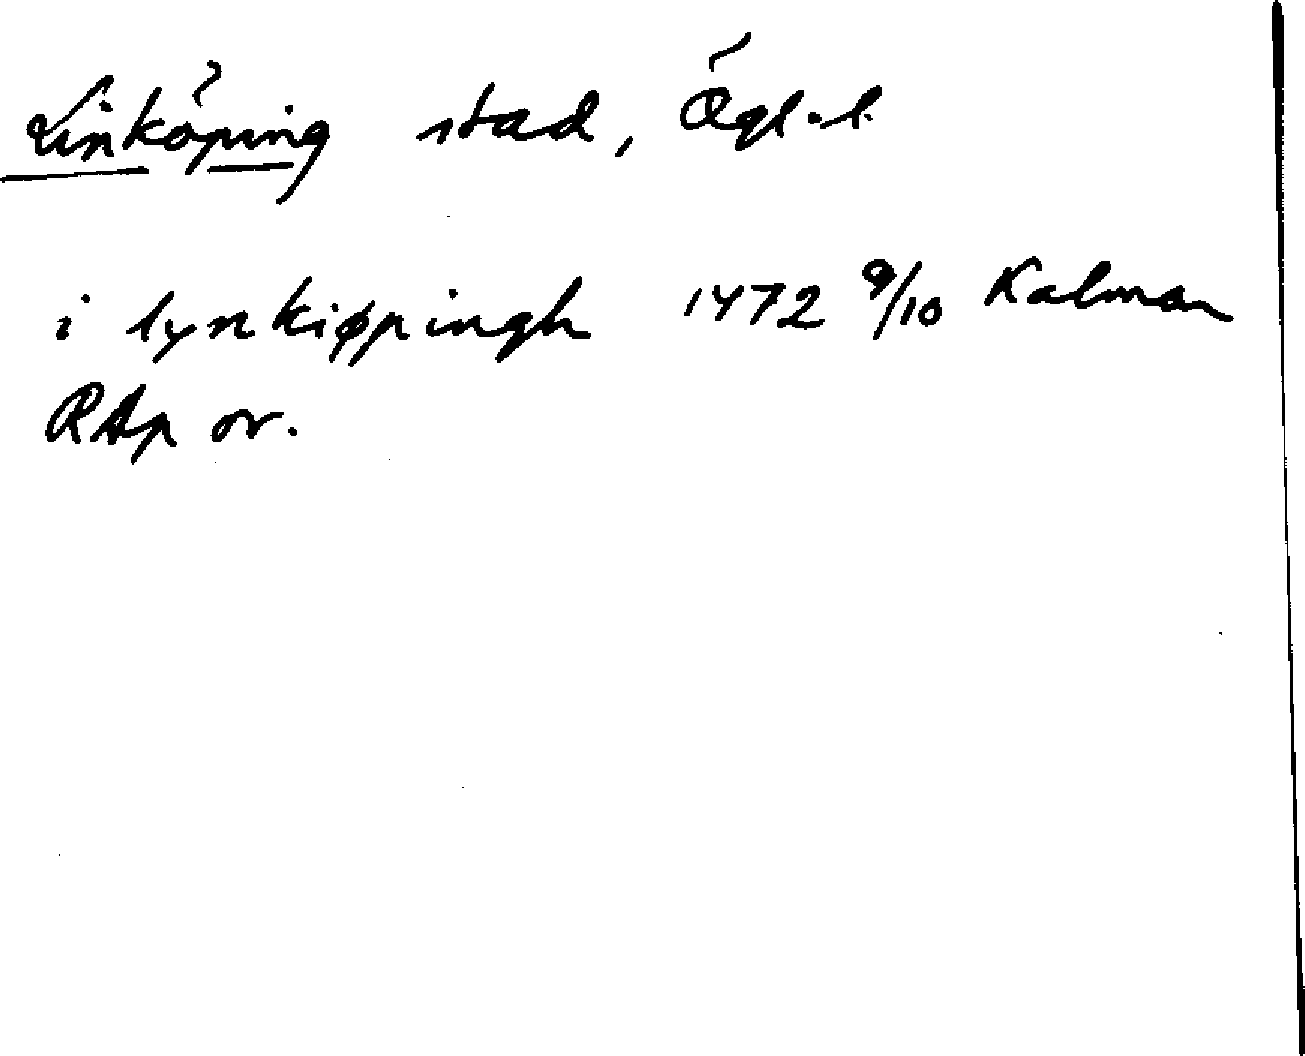 Linköping stad, Ögl.l.
i lynkiøpingh 1472 9/10 Kalmar
RAp or.